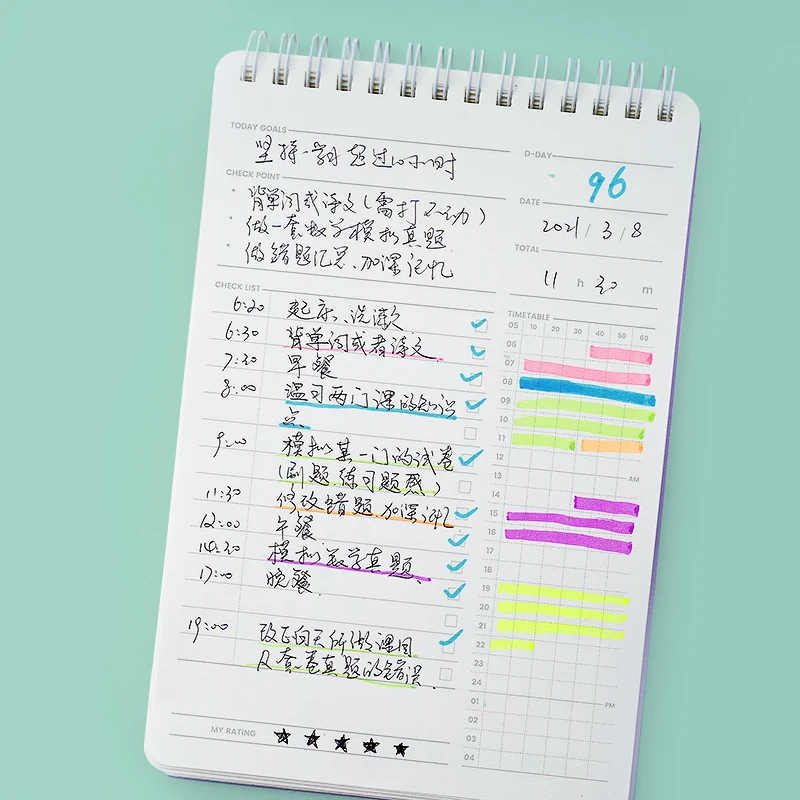 TODAY GOALS
坚持一学习超过10小时
D-DAY
96
CHECK POINT
背单词或课文(需打不动)
做一套数学模拟真题
做错题汇总、加深记忆
DATE
2021/3/8
TOTAL
11 h 30 m
CHECK LIST
6:20 起床、洗漱
6:30 背单词或者课文
7:30 早餐
8:00 温习两门课的知识
点
9:00 模拟某一门的试卷
(刷题、练习题感)
11:30 修改错题、加深记忆
12:00 午餐
14:30 模拟数学真题、
17:00 晚餐
19:00 改正白天所做课目
及套卷真题的错误
TIMETABLE
10 20 30 40 50 60
05
06
07
08
09
10
11
12
AM
13
14
15
16
17
18
19
20
21
22
23
24
PM
01
02
03
04
MY RATING